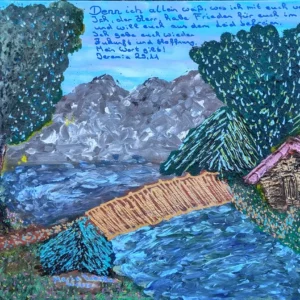 Denn ich allein weiß, was ich mit euch
Ich, der Herr, habe Frieden für euch im
und will euch aus dem Leid
Ich gebe euch wieder
Zukunft und Hoffnung.
Mein Wort gilt!
Jeremia 29,11